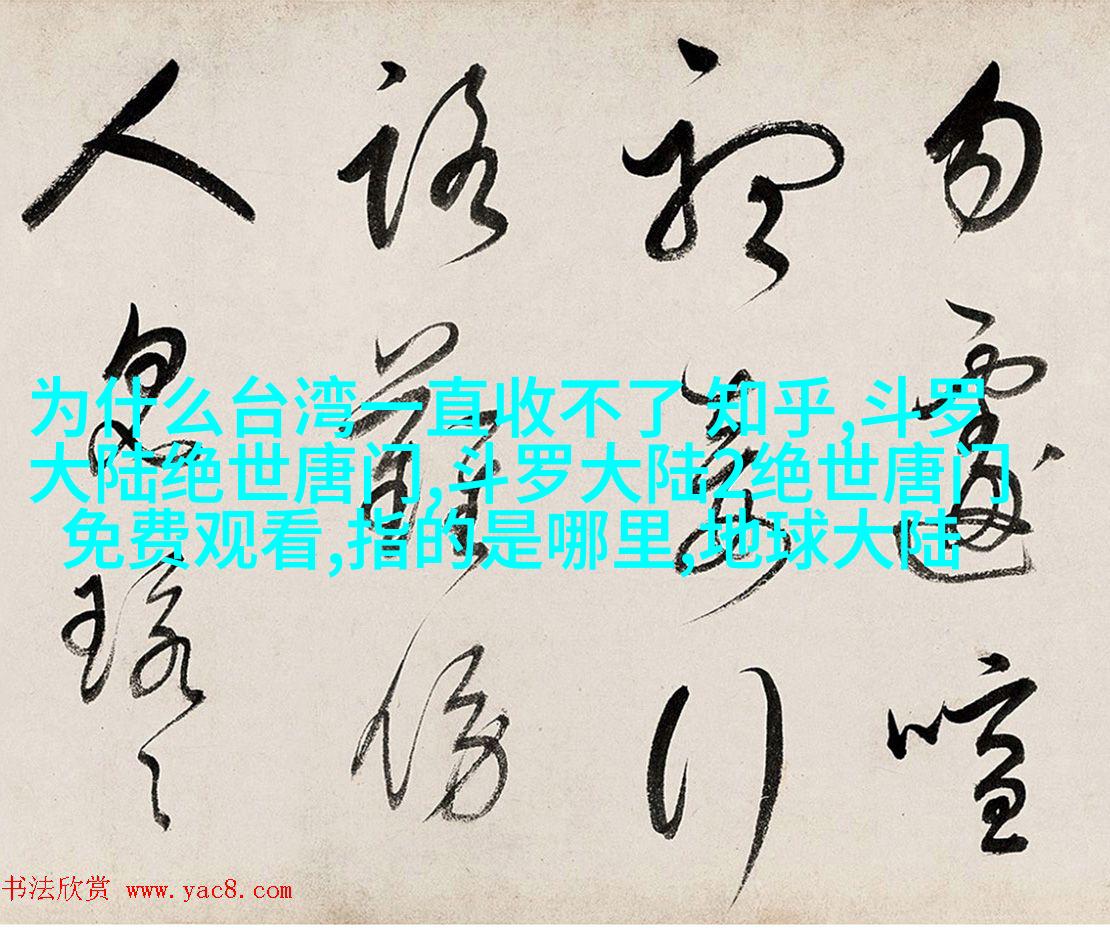 勿遽喧
行
路難傍
人
为什么台湾一直收不了 知乎,斗罗
大陆绝世唐门,斗罗大陆2绝世唐门
免费观看,指的是哪里,地球大陆
书法欣赏 www.yac8.com